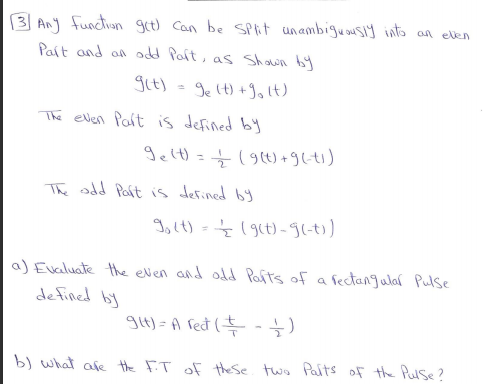 3 Any function g(t) can be split unambiguously into an even
Part and an odd Part, as shown by
g(t) = ge(t) + go(t)
The even Part is defined by
ge(t) = 1/2 (g(t) + g(-t))
The odd Part is defined by
go(t) = 1/2 (g(t) - g(-t))
a) Evaluate the even and odd Parts of a rectangular Pulse
defined by
g(t) = A rect(t/T - 1/2)
b) what are the F.T of these two Parts of the Pulse?